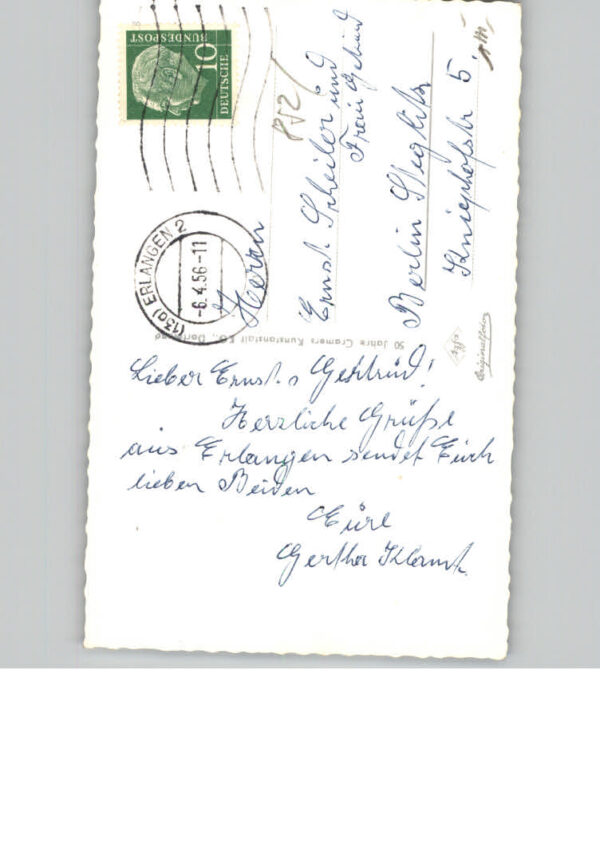 DEUTSCHE
BUNDESPOST
10
(13a) ERLANGEN 2
-6.4.56-11
Herrn
Ernst Scheiler und
Frau Gertrud
Berlin Steglitz
Kniephofstr 5.
50 Jahre Cramers Kunstanstalt KG., Dortmund
Agfa
Originalfoto
Lieber Ernst u Gertrud!
Herzliche Grüße
aus Erlangen sendet Euch
lieben Beiden
Eure
Gertha